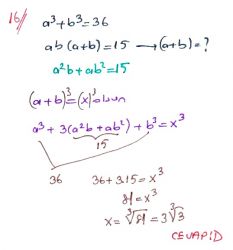 16// a³+b³=36
ab(a+b)=15 → (a+b)=?
a²b+ab²=15
(a+b)³=(x)³ olsun
a³+3(a²b+ab²)+b³=x³
15
36 36+3.15=x³
81=x³
x=∛81=3∛3
CEVAP D